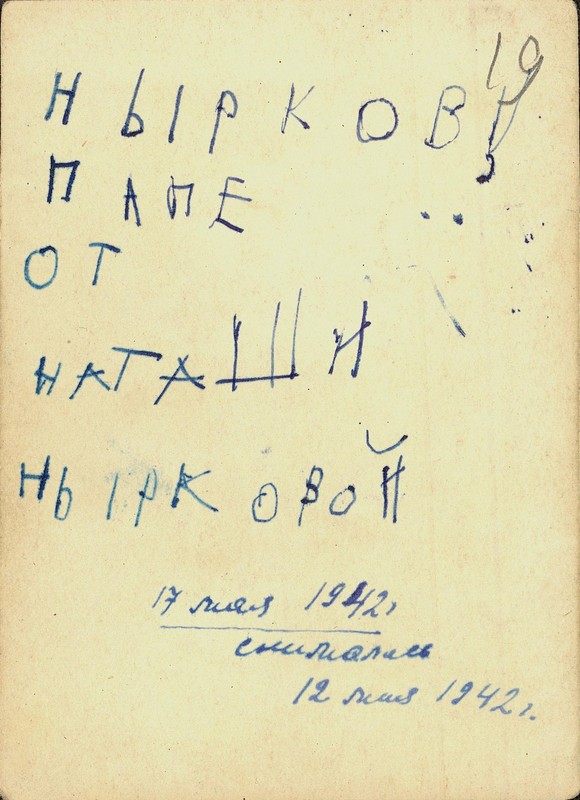 19
НЫРКОВУ
ПАПЕ
ОТ
НАТАШИ
НЫРКОВОЙ
17 мая 1942 г
снималась
12 мая 1942 г.